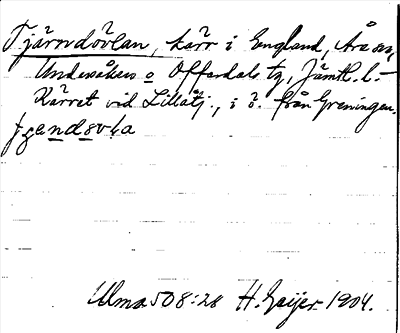 Tjärndövlan, kärr i England, Åråsen,
Undersåkers o Offerdals tg, Jämtl. l.-
Kärret vid Lillåtj., i ö. från Greningen.
Ulma 508:28 H. Geijer 1904.